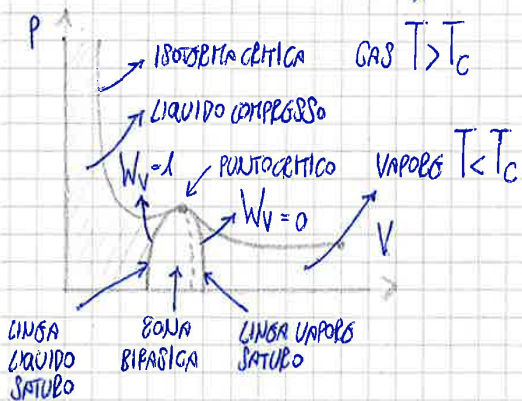 P
ISOTERMA CRITICA
GAS T>Tc
LIQUIDO COMPRESSO
Wv=1
PUNTO CRITICO
VAPORE T<Tc
Wv=0
V
LINEA LIQUIDO SATURO
ZONA BIFASICA
LINEA VAPORE SATURO